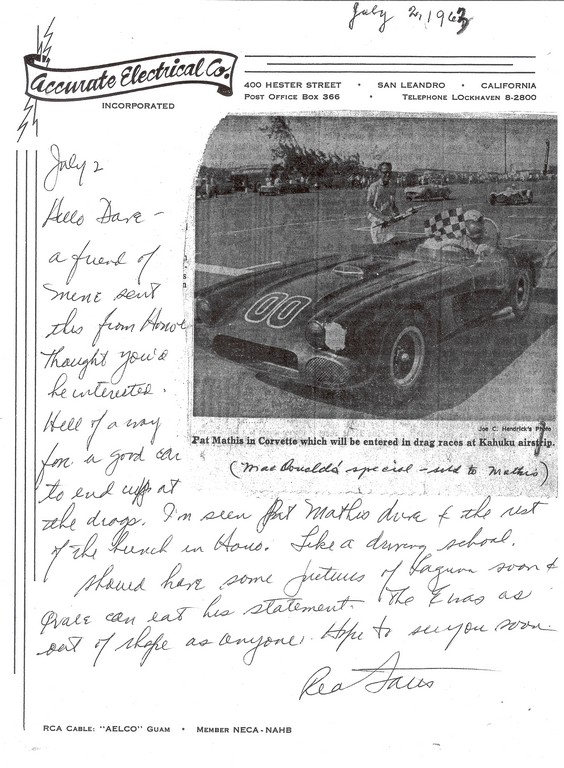 July 2, 1963
Accurate Electrical Co.
INCORPORATED
400 HESTER STREET • SAN LEANDRO • CALIFORNIA
POST OFFICE BOX 366 • TELEPHONE LOCKHAVEN 8-2800
July 2
Hello Dave -
a friend of
mine sent
this from Hono
Thought you'd
be interested.
Hell of a way
for a good car
to end up at
the drags. I'm seen Pat Mathis drive & the rest
of the bunch in Hono. Like a driving school.
Should have some pictures of Laguna soon &
Qvale can eat his statement. The was as
out of shape as anyone. Hope to see you soon.
Rea
00
Joe C. Hendrick's Photo
Pat Mathis in Corvette which will be entered in drag races at Kahuku airstrip.
(MacDonald's special - sold to Mathis)
RCA CABLE: "AELCO" GUAM • MEMBER NECA-NAHB